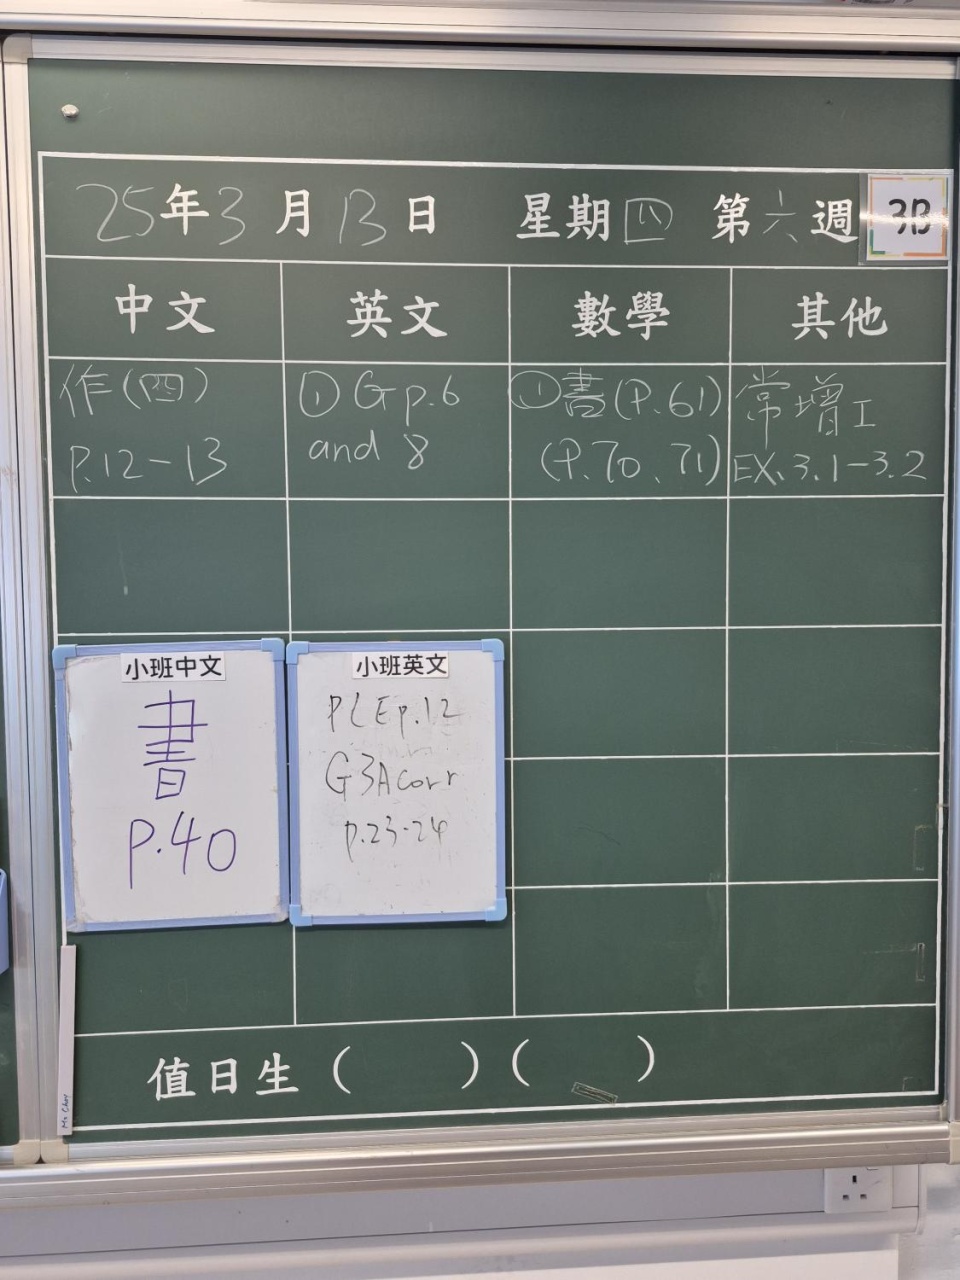 25年3月13日 星期四 第六週 3B
中文 英文 數學 其他
作(四)
p.12-13
① G p.6
and 8
①書(P.61)
(P.70、71)
常增工
EX.3.1-3.2
小班中文
書
P.40
小班英文
PLE p.12
G3A corr
p.23-24
值日生( )( )